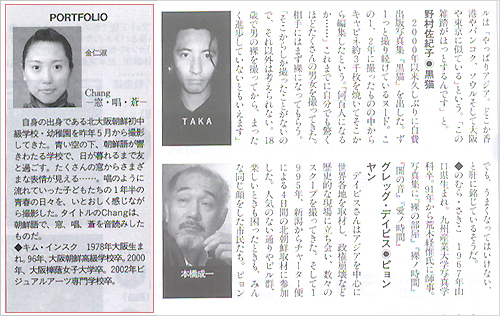 PORTFOLIO
金仁淑
Chang
―窓・唱・蒼―
自身の出身である北大阪朝鮮初中
級学校・幼稚園を昨年5月から撮影
してきた。青い空の下、朝鮮語が響
きわたる学校で、日が暮れるまで友
と過ごす。たくさんの窓からさまざ
まな表情が見える……。唱のように
流れていった子どもたちの1年半の
青春の日々を、いとおしく感じなが
ら撮影した。タイトルのChangは、
朝鮮語で、窓、唱、蒼を音読みした
ものだ。
◆キム・インスク 1978年大阪生ま
れ。96年、大阪朝鮮高級学校卒。20
00年、大阪樟蔭女子大学卒。2002年ビ
ジュアルアーツ専門学校卒。
ルは「やっぱりアジア。どこか香
港やバンコク、ソウルそして大阪
や東京に似ている」という。「この
雑踏がほっとするんです」と。
野村佐紀子●黒猫
2000年以来久しぶりに自費
出版写真集『黒猫』を出した。ず
っと撮り続けているヌード。こ
の1、2年に撮ったものの中から
キャビネ約3千枚を焼いてそこか
ら編集したという。「何百人になる
か……これまでに自分でも驚く
ほどたくさんの男女を撮ってきた。
相手にはまず裸になってもらう。
そこからしか撮ることがなく
て、それ以外は考えられない。18
歳で男の裸を撮ってから、まった
く進歩していないともいえます
TAKA
ても、うまくなってはいけない、
と肝に銘じているそうだ。
◆のむら・さきこ 1967年山
口県生まれ。九州産業大学写真学
科卒。91年から荒木経惟氏に師事。
写真集に『裸ノ部屋』『裸ノ時間』
『闇の音』『愛ノ時間』
グレッグ・デイビス●ピョン
ヤン
デイビスさんはアジアを中心に
世界各地を取材し、政権崩壊など
歴史的な現場に立ち会い、数々の
スクープを撮ってきた。そして1
995年、新潟からチャーター便
による4日間の北朝鮮取材に参加
した。人気のない通りやビル群、
楽しいときも困ったときも、みん
な同じ顔をした市民たち。ピョン
本橋成一